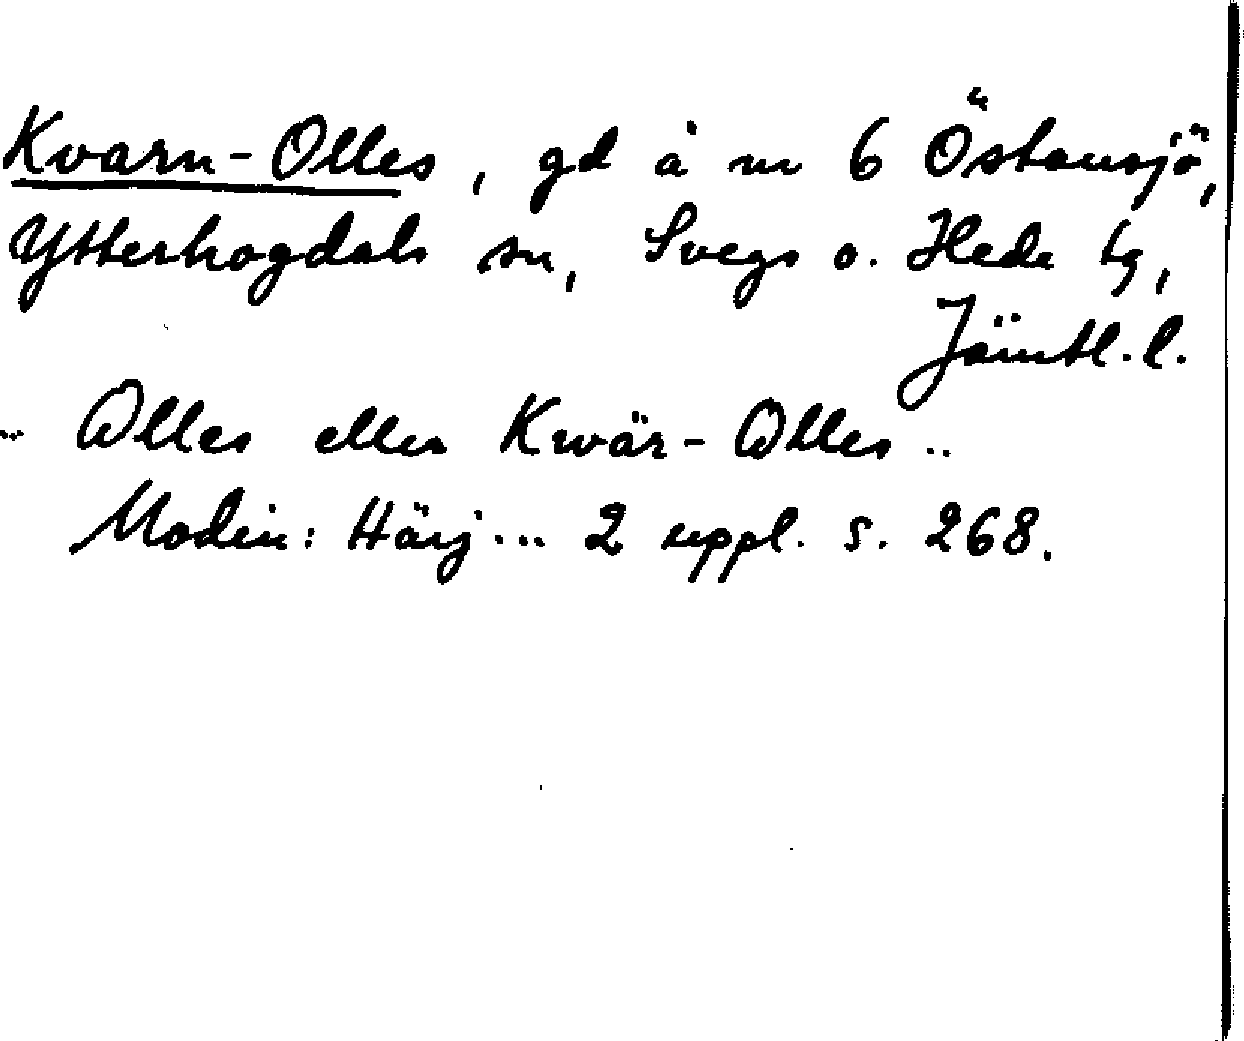 Kvarn-Olles, gd å nr 6 Östansjö,
Ytterhogdals sn, Svegs o. Hede tg,
Jämtl. l.
.. Olles eller Kwär-Olles ..
Modin: Härj... 2 uppl. s. 268.